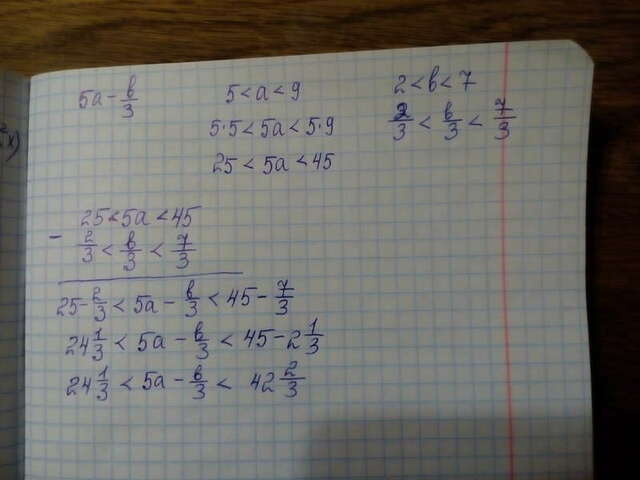 5a - в/3
5 < a < 9
5·5 < 5a < 5·9
25 < 5a < 45
2 < в < 7
2/3 < в/3 < 7/3
- 25 < 5a < 45
2/3 < в/3 < 7/3
25 - 2/3 < 5a - в/3 < 45 - 7/3
24 1/3 < 5a - в/3 < 45 - 2 1/3
24 1/3 < 5a - в/3 < 42 2/3